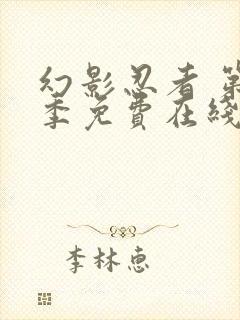 幻影忍者 第
季免費在綫
李林惠